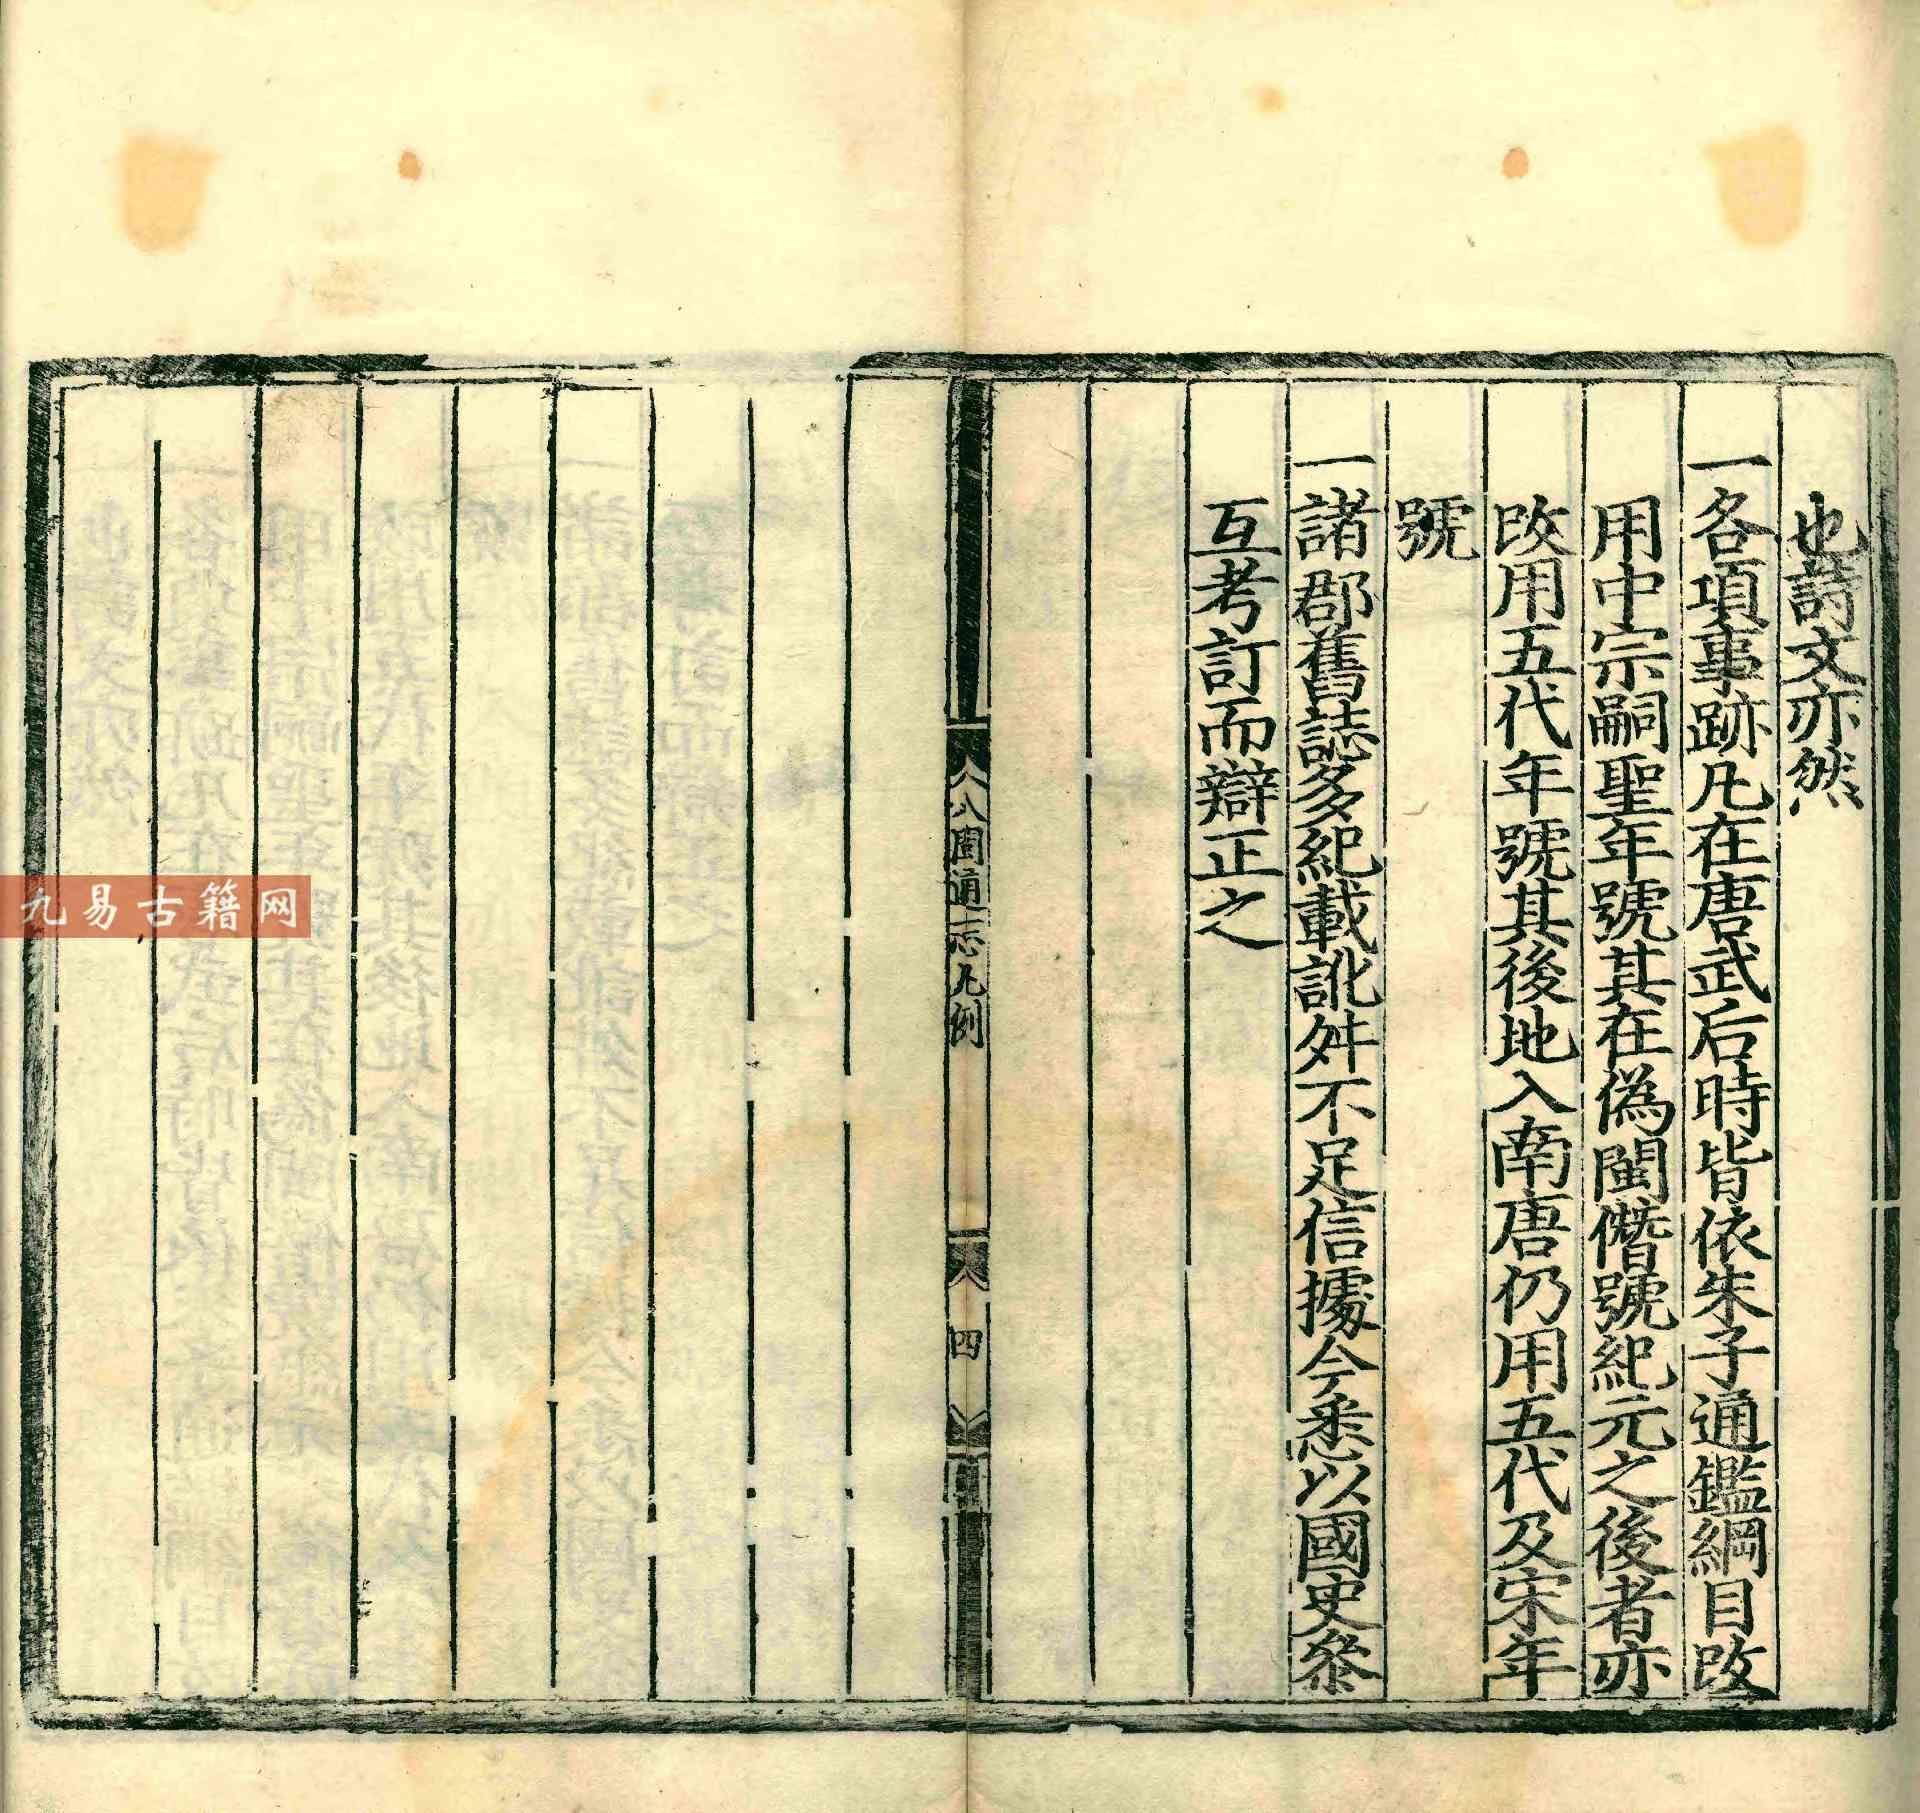 也詩文亦然
一各項事跡凡在唐武后時皆依朱子通鑑綱目改
用中宗嗣聖年號其在偽閩僭號紀元之後者亦
改用五代年號其後地入南唐仍用五代及宋年
號
一諸郡舊誌多紀載訛舛不足信據今悉以國史叅
互考訂而辯正之
八閩通志凡例
四
九易古籍网